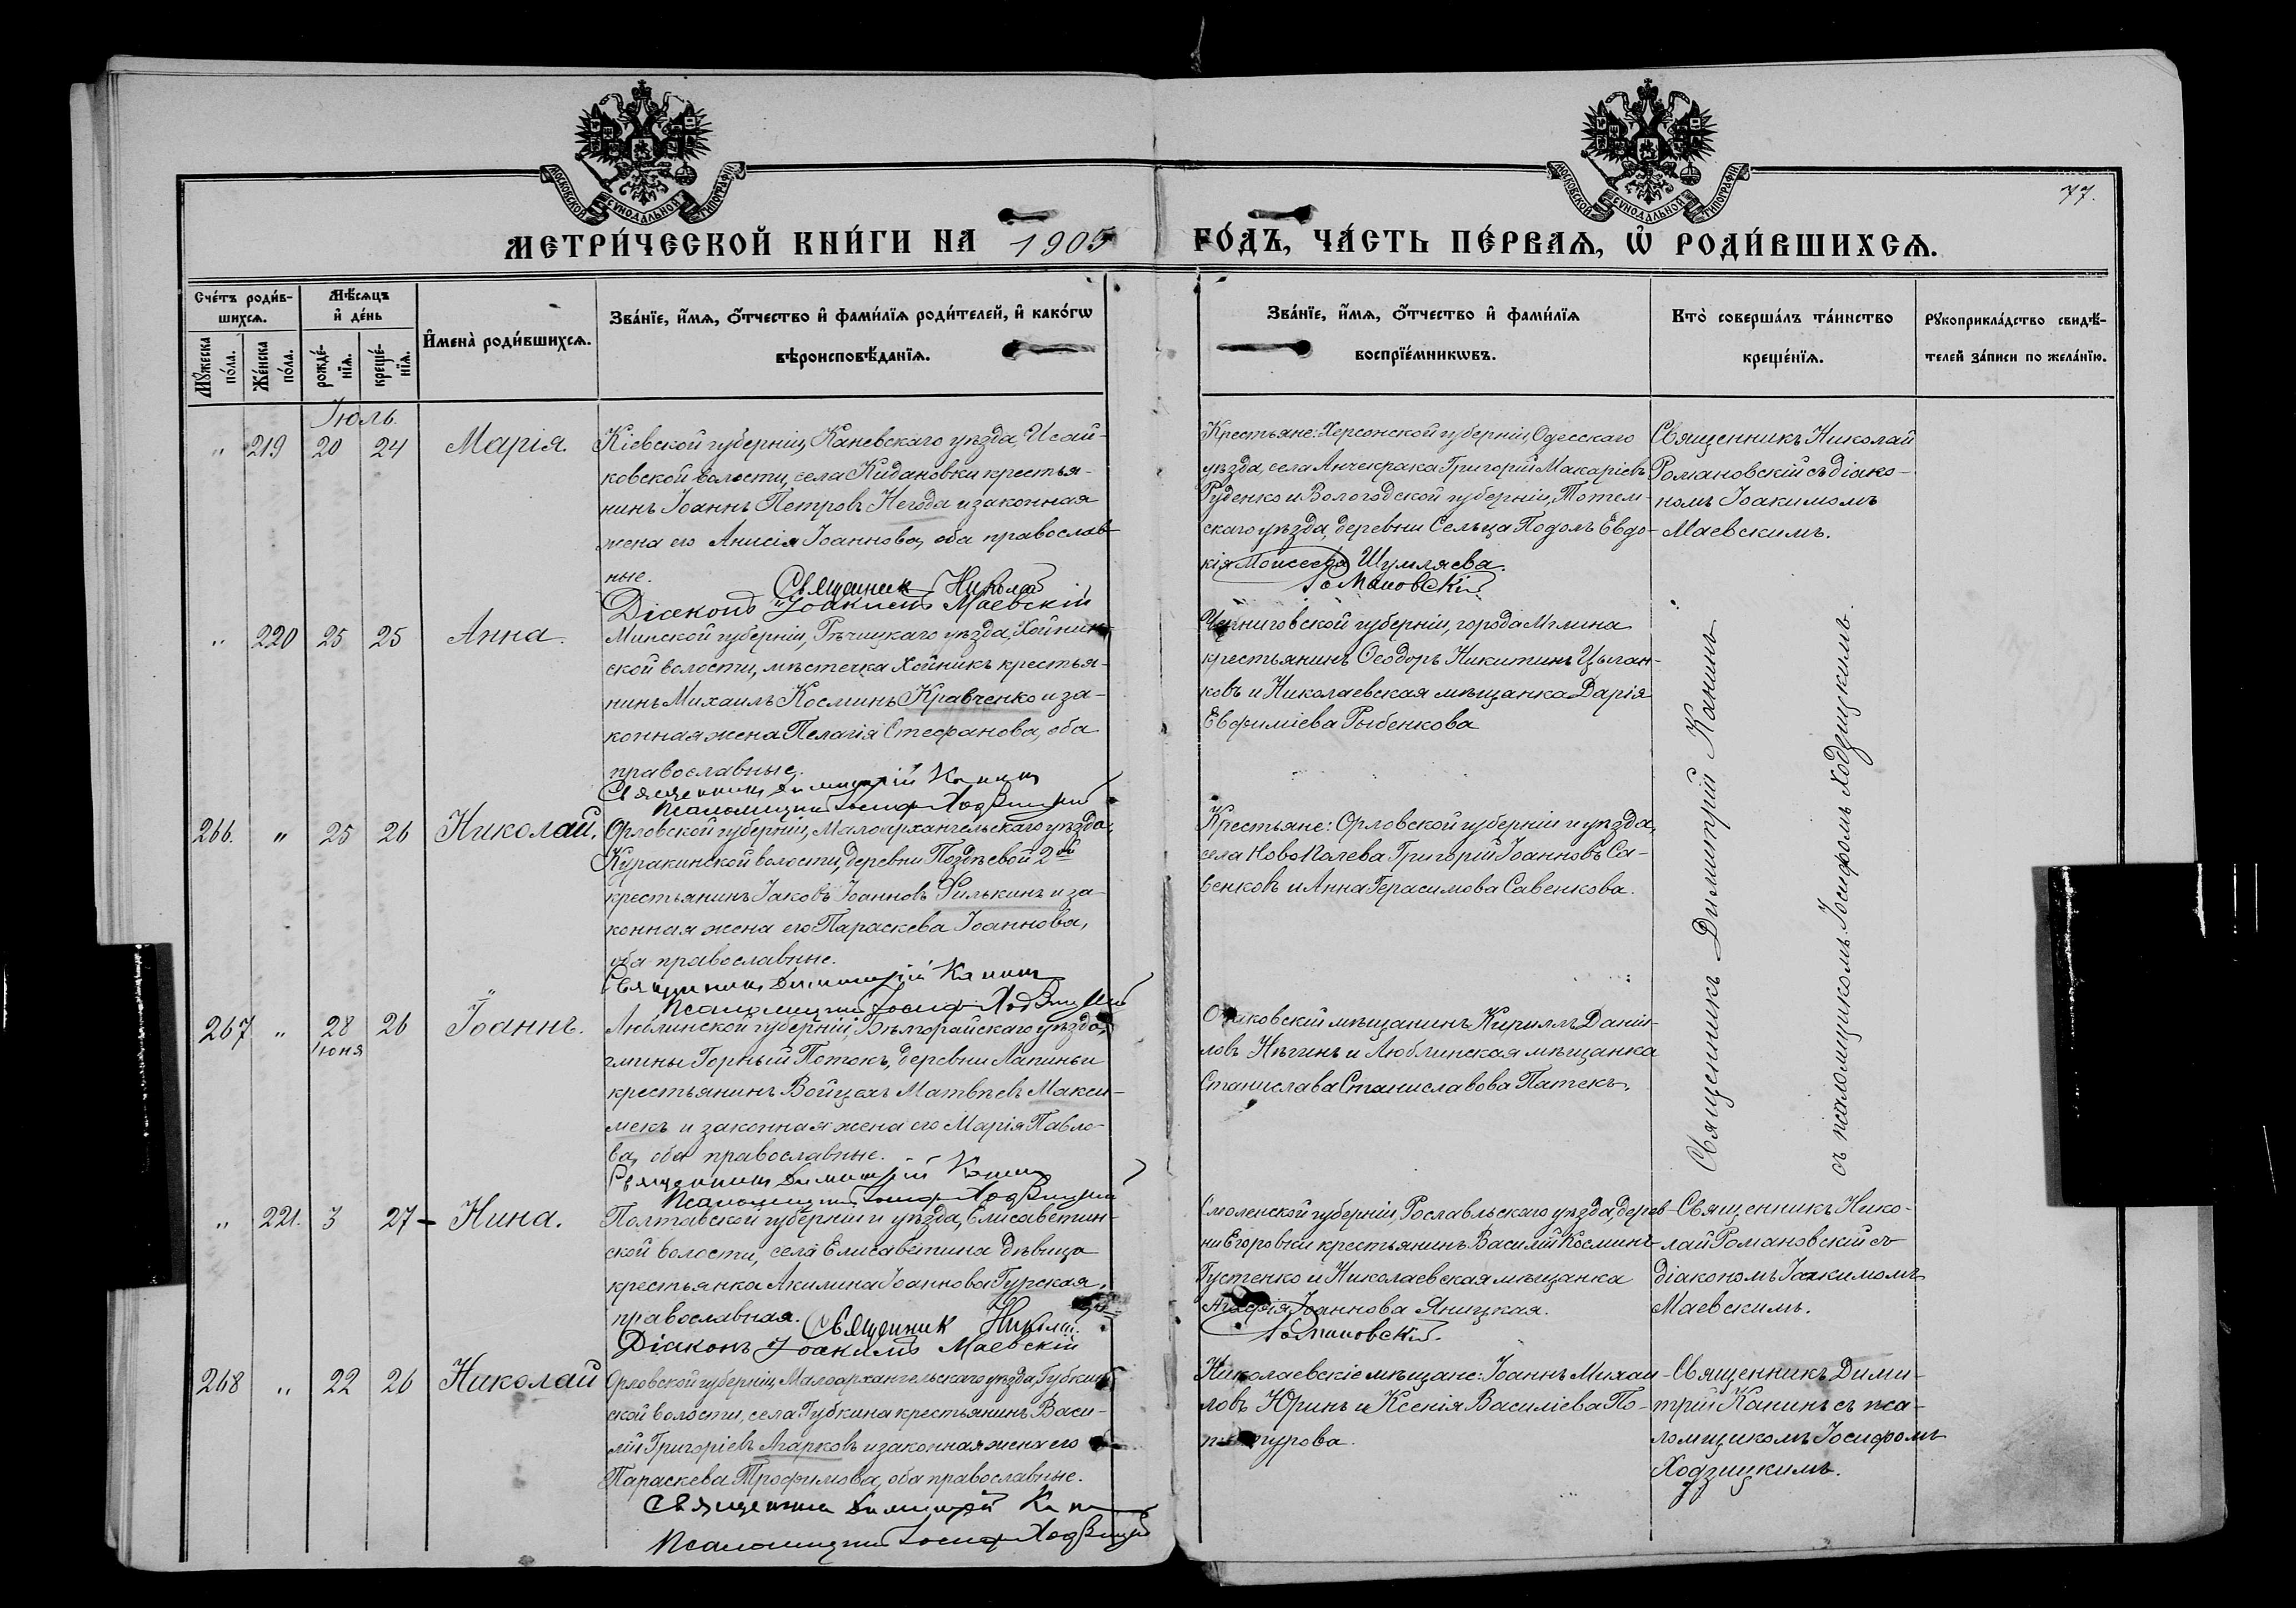 МОСКОВСКОЙ СѴНОДАЛЬНОЙ ТИПОГРАФІИ
МОСКОВСКОЙ СѴНОДАЛЬНОЙ ТИПОГРАФІИ
77.
МЕТРИ́ЧЕСКОЙ КНИ́ГИ НА 1905 ГО́ДЪ, ЧА́СТЬ ПЕ́РВАѦ, Ѡ҆ РОДИ́ВШИХСѦ.
Сче́тъ роди́в-
шихсѧ.
Мѹ́жеска по́ла.
Же́нска по́ла.
Мѣ́сѧцъ
и҆ де́нь
рожде́-
нїѧ.
креще́-
нїѧ.
И҆мена̀ роди́вшихсѧ.
Зва́нїе, и҆́мѧ, ѻ҆́тчество и҆ фами́лїѧ роди́телей, и҆ како́гѡ
вѣроисповѣ́данїѧ.
Зва́нїе, и҆́мѧ, ѻ҆́тчество и҆ фами́лїѧ
воспрїе́мникѡвъ.
Кто̀ соверша́лъ та́инство
креще́нїѧ.
Рѹкоприкла́дство свидѣ́-
телей за́писи по жела́нїю.
Іюль.
„ 219 20 24 Марія.
Кіевской губерніи, Каневскаго уѣзда, Исай-
ковской волости, села Кидановки крестья-
нинъ Іоаннъ Петровъ Негода и законная
жена его Анисія Іоаннова, оба православ-
ные.
Священникъ Николай
Діаконъ Іоакимъ Маевскій
Крестьяне: Херсонской губерніи, Одесскаго
уѣзда, села Анчекрака Григорій Макаріевъ
Руденко и Вологодской губерніи, Тотем-
скаго уѣзда, деревни Сельца Подолъ Евдо-
кія Моисеева Шумляева.
Романовскій
Священникъ Николай
Романовскій съ діако-
номъ Іоакимомъ
Маевскимъ.
„ 220 25 25 Анна.
Минской губерніи, Рѣчицкаго уѣзда, Хойник-
ской волости, мѣстечка Хойникъ крестья-
нинъ Михаилъ Косминъ Кравченко и за-
конная жена Пелагія Стефанова, оба
православные.
Священникъ Димитрій Канинъ
Псаломщикъ Іосифъ Ходзицкій
Черниговской губерніи, города Мглина
крестьянинъ Ѳеодоръ Никитинъ Цыган-
ковъ и Николаевская мѣщанка Дарія
Евфиміева Рыбенкова
Священникъ Димитрій Канинъ
съ псаломщикомъ Іосифомъ Ходзицкимъ.
266. „ 25 26 Николай.
Орловской губерніи, Малоархангельскаго уѣзда,
Куракинской волости, деревни Поздѣевой 2ой
крестьянинъ Іаковъ Іоанновъ Филькинъ и за-
конная жена его Параскева Іоаннова,
оба православные.
Священникъ Димитрій Канинъ
Псаломщикъ Іосифъ Ходзицкій
Крестьяне: Орловской губерніи и уѣзда,
села Григорій Іоанновъ Са-
венковъ и Анна Герасимова Савенкова.
267 „ 28 26 Іоаннъ.
Іюня
Люблинской губерніи, Бѣлгорайскаго уѣзда,
гмины Горный Потокъ, деревни Лапиньи
крестьянинъ Войцехъ Матвѣевъ Макси-
мекъ и законная жена его Марія Павло-
ва, оба православные.
Священникъ Димитрій Канинъ
Псаломщикъ Іосифъ Ходзицкій
Очаковскій мѣщанинъ Кириллъ Даніи-
ловъ Нѣгинъ и Люблинская мѣщанка
Станислава Станиславова Патекъ.
„ 221. 3 27 - Нина.
Полтавской губерніи и уѣзда, Елисаветин-
ской волости, села Елисаветина дѣвица
крестьянка Акилина Іоаннова Гурская,
православная. Священникъ Николай
Діаконъ Іоакимъ Маевскій
Смоленской губерніи, Рославльскаго уѣзда, дерев-
ни Егоровки крестьянинъ Василій Косминъ
Густенко и Николаевская мѣщанка
Агафія Іоаннова Яницкая.
Романовскій.
Священникъ Нико-
лай Романовскій съ
діакономъ Іоакимомъ
Маевскимъ.
268 „ 22 26 Николай
Орловской губерніи, Малоархангельскаго уѣзда, Губкин-
ской волости, села Губкина крестьянинъ Васи-
лій Григоріевъ Агарковъ и законная жена его
Параскева Трофимова, оба православные.
Священникъ Димитрій Канинъ
Псаломщикъ Іосифъ Ходзицкій
Николаевскіе мѣщане: Іоаннъ Михаи-
ловъ Юринъ и Ксенія Василіева
Священникъ Дими-
трій Канинъ съ пса-
ломщикомъ Іосифомъ
Ходзицкимъ.